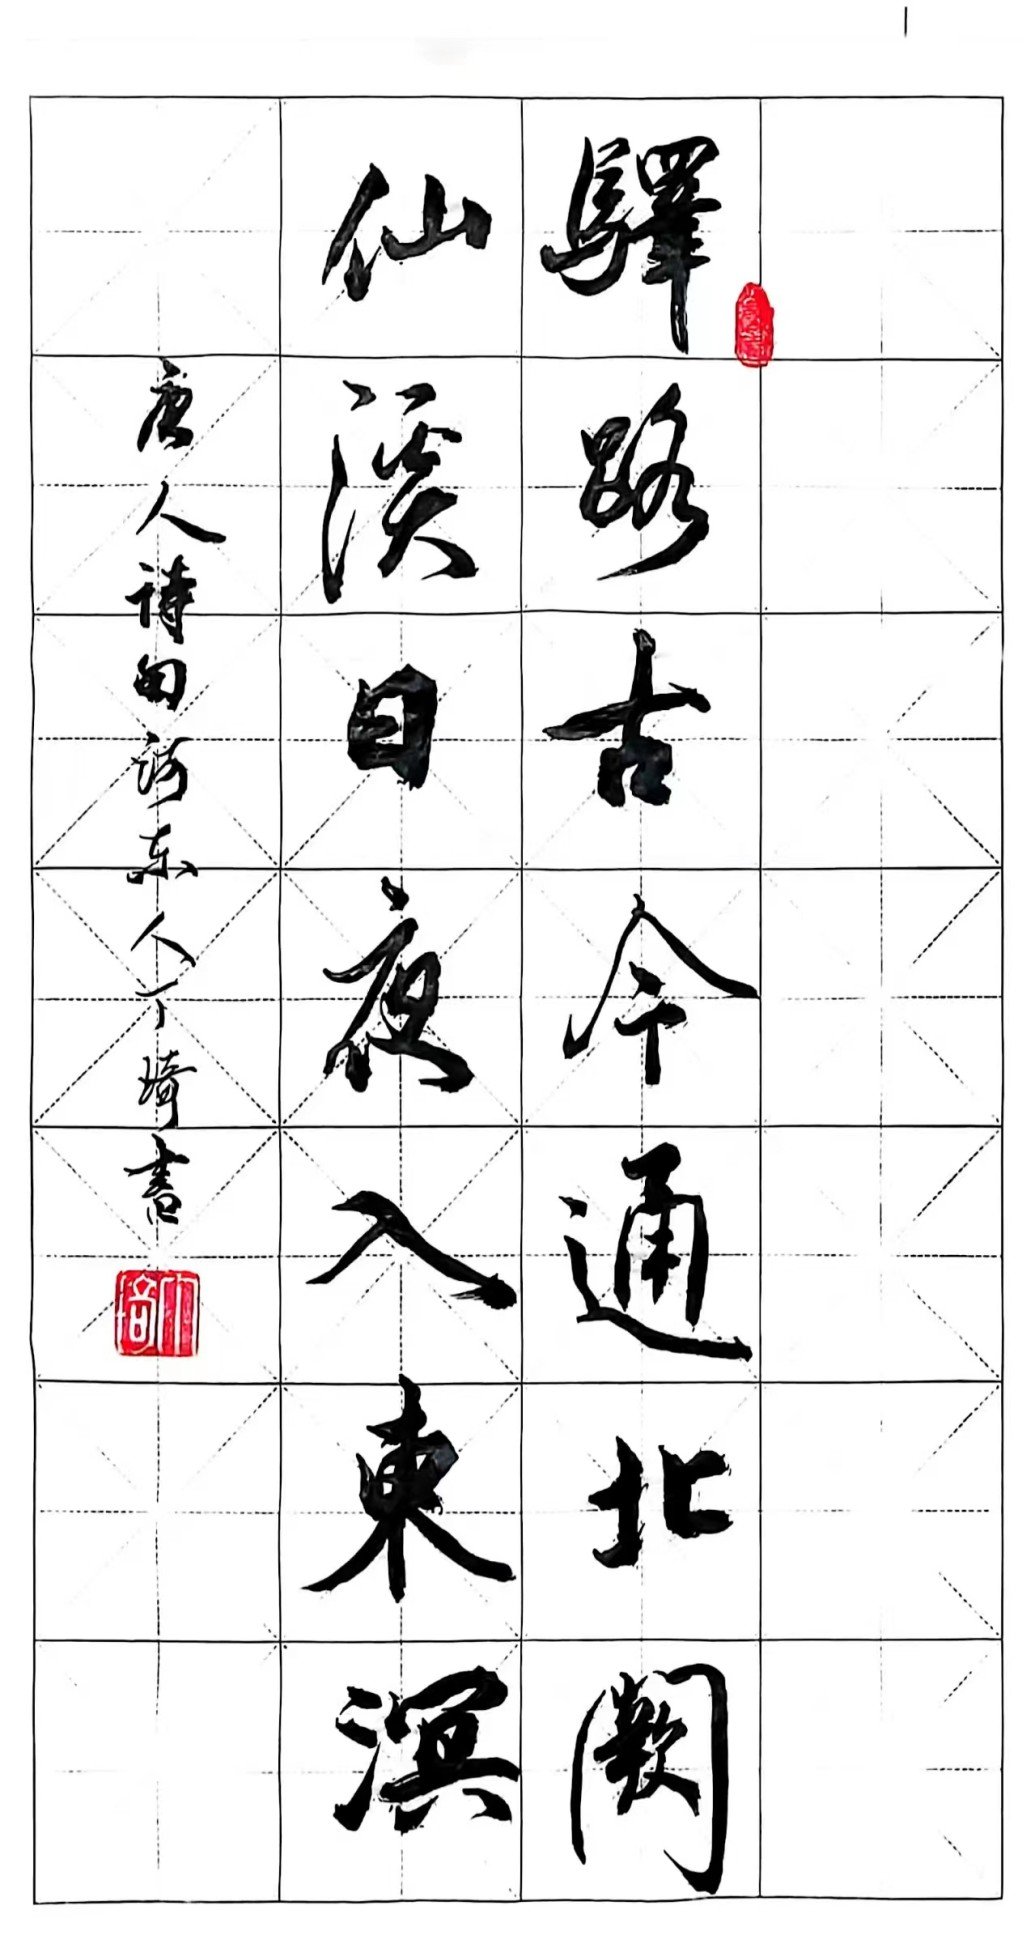 驛路古今通北闕
仙溪日夜入東溟
唐人詩句河东人丁琦書